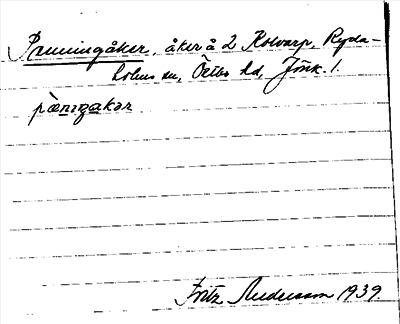 Pruningåker, åker å 2 Kolvarp, Ryda-
holms sn, Östbo hd, Jönk. l.
Fritz Andersson 1939.